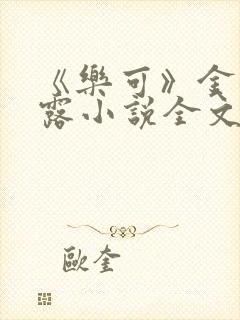 《樂可》金
露小說全文
歐奎